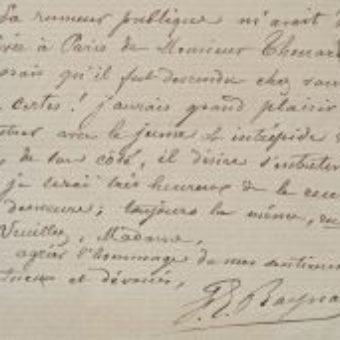 La rumeur publique m'avait
à Paris de Monsieur
qu'il fut descendu chez
certes! j'aurais grand plaisir
avec le jeune et intrépide
de son côté, il désire
je serai très heureux de la
demeure; toujours la même,
Veuillez, Madame,
agréer l'hommage de mes
et dévoués,